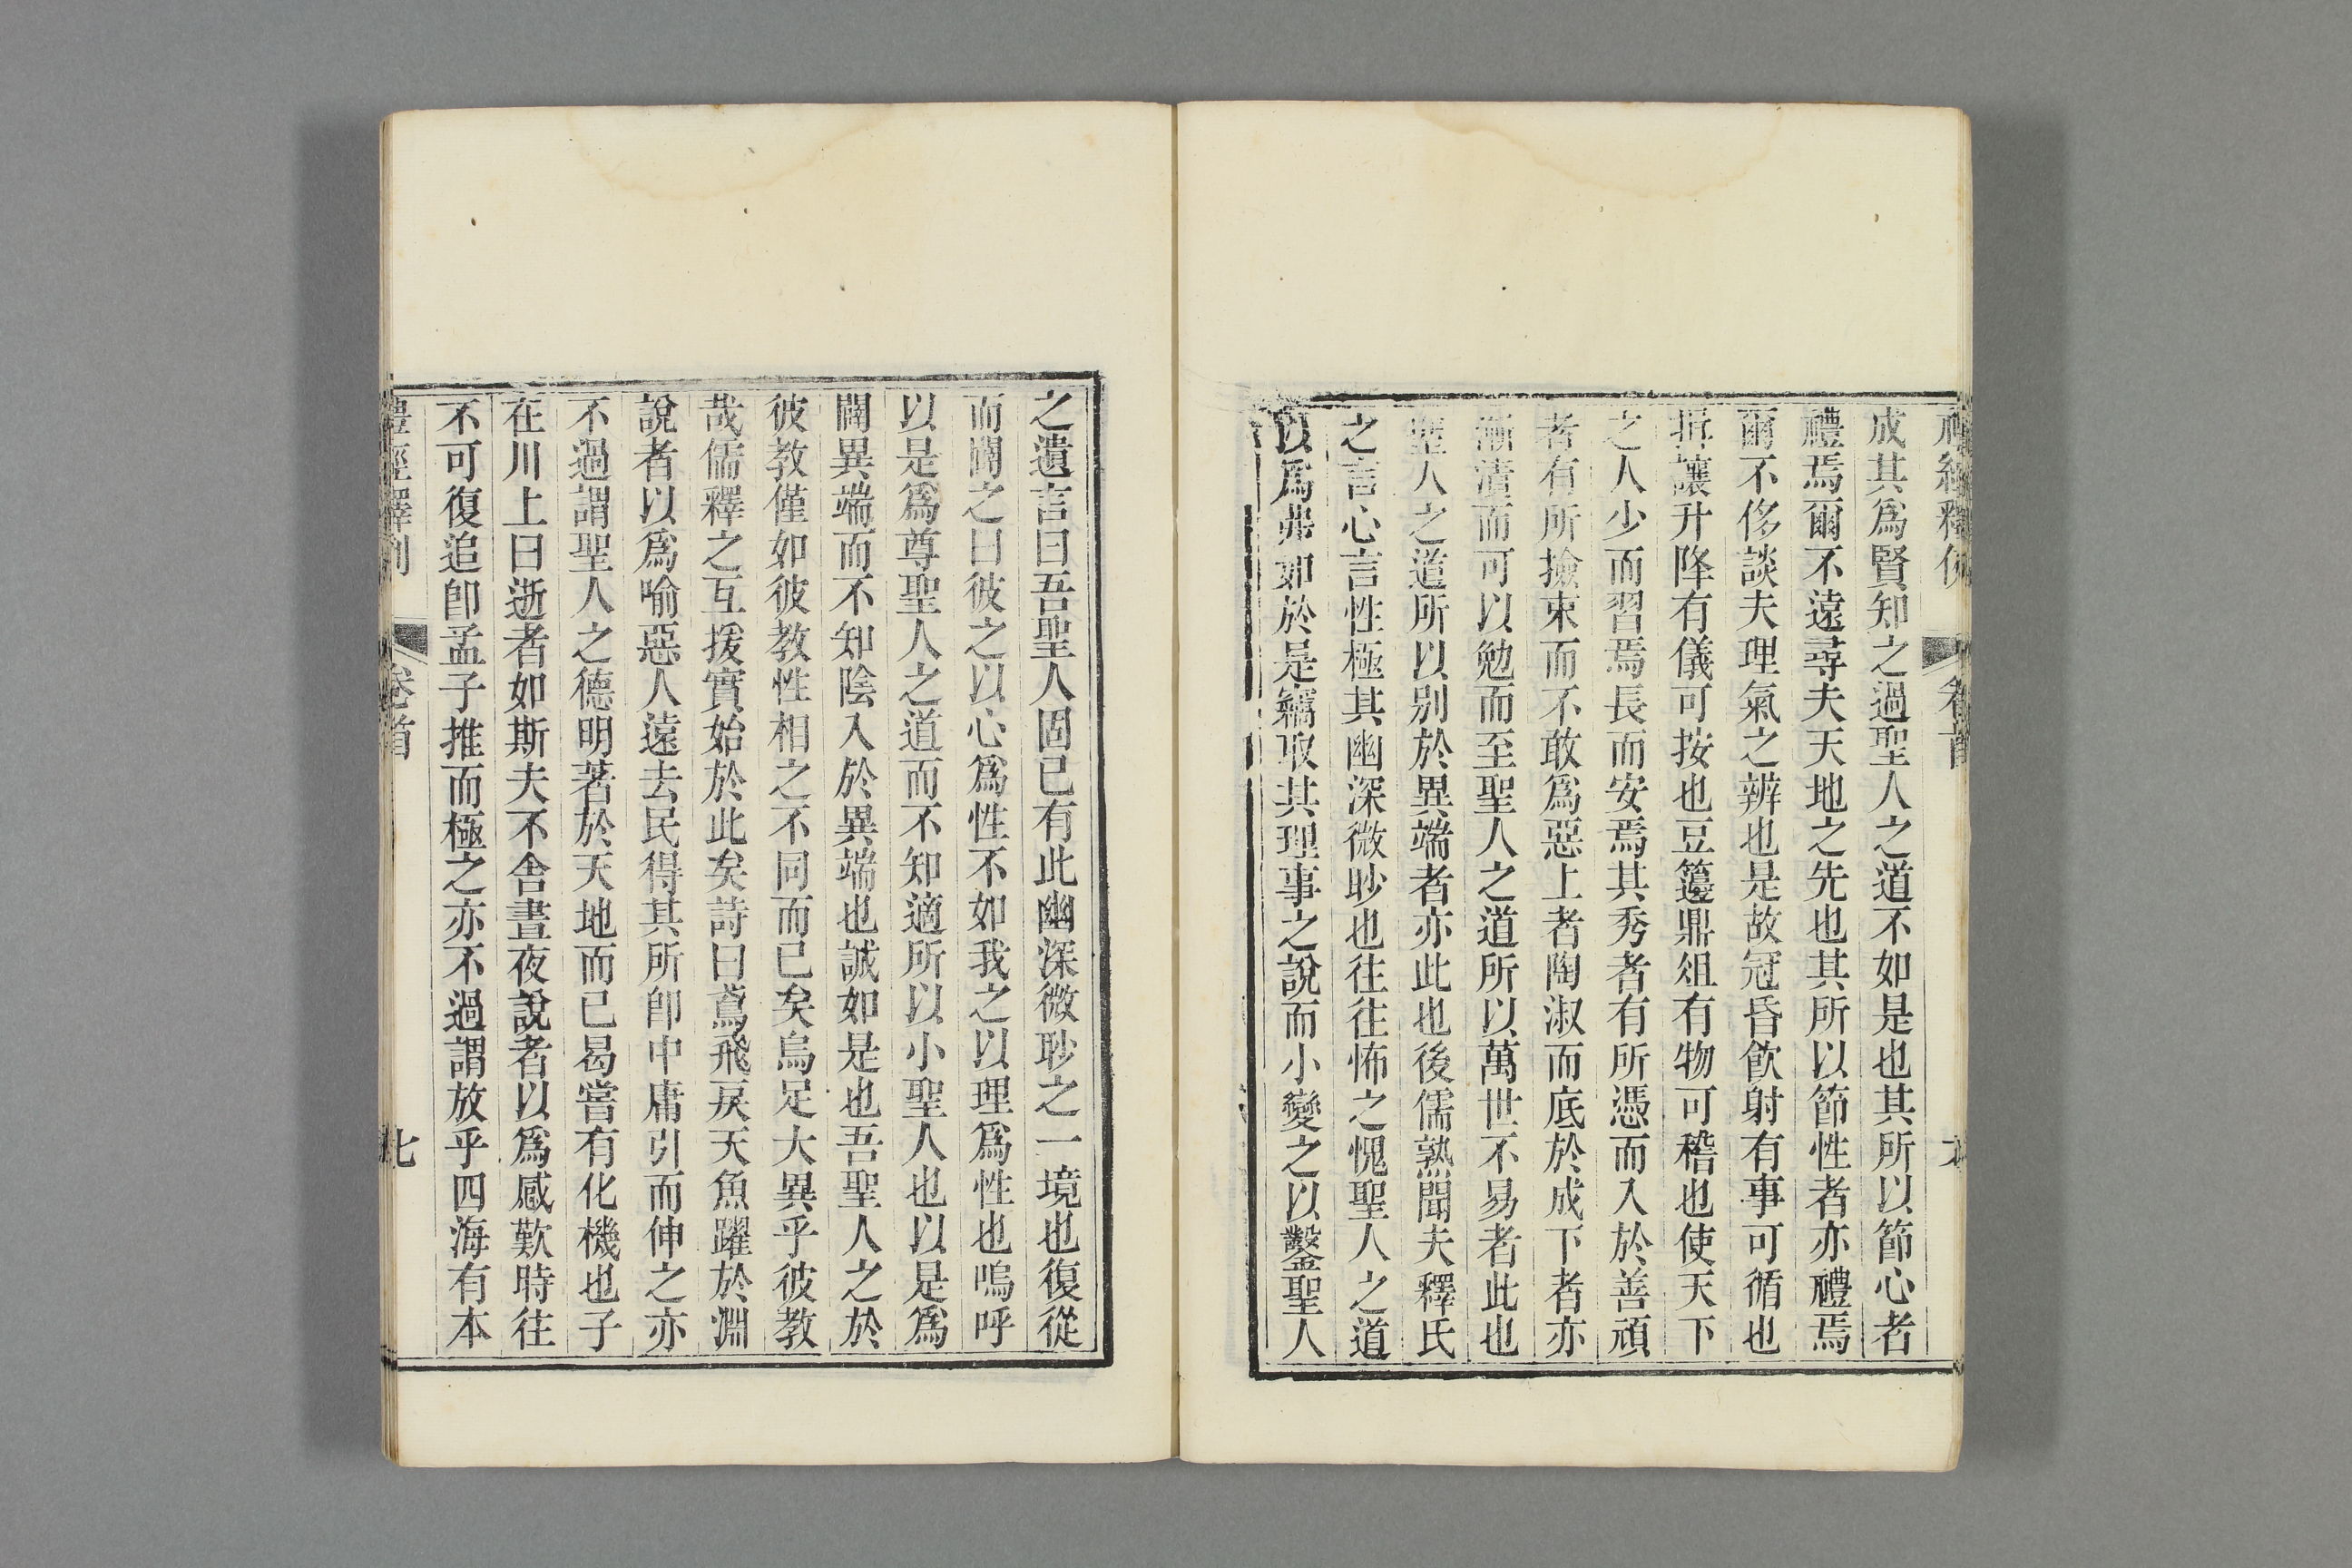 成其爲賢知之過聖人之道不如是也其所以節心者
禮焉爾不遠尋夫天地之先也其所以節性者亦禮焉
爾不侈談夫理氣之辨也是故冠昏飮射有事可循也
揖讓升降有儀可按也豆籩鼎俎有物可稽也使天下
之人少而習焉長而安焉其秀者有所憑而入於善頑
者有所撿束而不敢爲惡上者陶淑而底於成下者亦
漸漬而可以勉而至聖人之道所以萬世不易者此也
聖人之道所以別於異端者亦此也後儒熟聞夫釋氏
之言心言性極其幽深微眇也往往怖之愧聖人之道
以爲弗如於是竊取其理事之說而小變之以鑿聖人
之遺言曰吾聖人固已有此幽深微眇之一境也復從
而闢之曰彼之以心爲性不如我之以理爲性也嗚呼
以是爲尊聖人之道而不知適所以小聖人也以是爲
闢異端而不知陰入於異端也誠如是也吾聖人之於
彼教僅如彼教性相之不同而已矣烏足大異乎彼教
哉儒釋之互援實始於此矣詩曰鳶飛戾天魚躍於淵
說者以爲喻惡人遠去民得其所卽中庸引而伸之亦
不過謂聖人之德明著於天地而已曷嘗有化機也子
在川上曰逝者如斯夫不舍晝夜說者以爲感歎時往
不可復追卽孟子推而極之亦不過謂放乎四海有本
禮經釋例
卷首
七